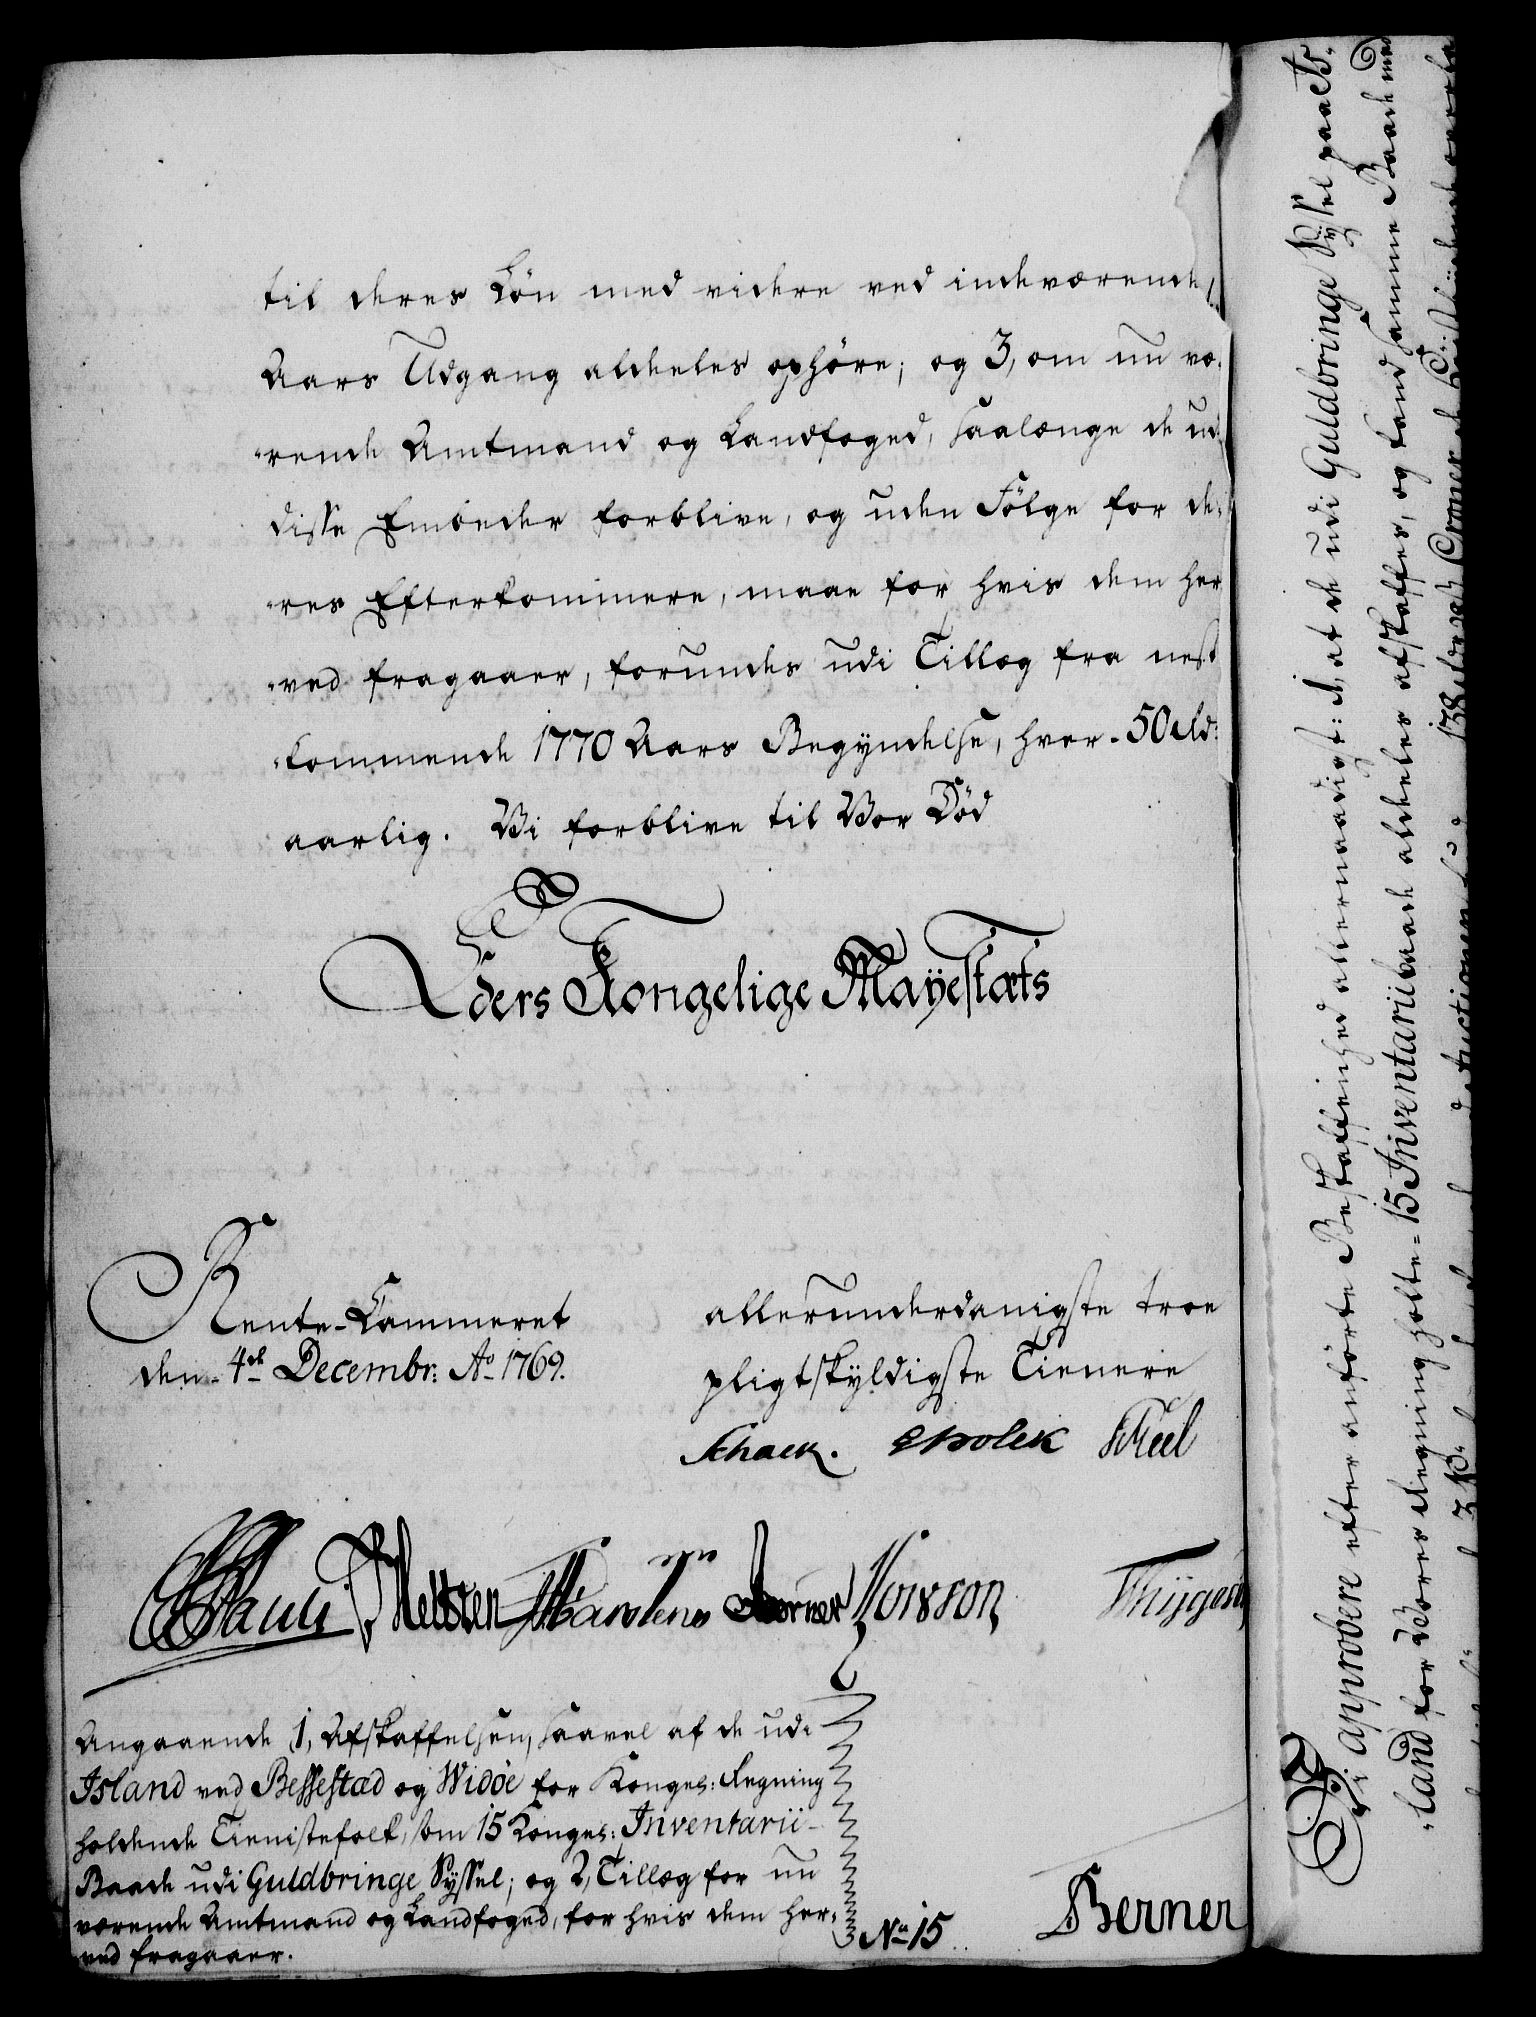 til deres Løn med videre ved indeværende
Aars Udgang aldeles ophøre; og 3, om nu væ-
-rende Amtmand og Landfoged, saalænge de udi
disse Embeder forblive, og uden Følge for de-
-res Efterkommere, maae for hvis dem her
-ved fragaaer, forundes udi Tillæg fra nest
-kommende 1770 Aars Begyndelse, hver 50 Rd:
aarlig. Vi forblive til Vor Død
Eders Kongelige Mayestæts
Rente-Cammeret
den 4de Decembr: Ao 1769.
allerunderdanigste troe
pligtskyldigste Tienere
Schack. Holck Juel
Pauli Meltzen Martens Berner Koisson Thygesen
Angaaende 1, Afskaffelsen, saavel af de udi
Island ved Bessestad og Widöe for Konges: Regning
holdende Tienistefolk, som 15 Konges: Inventarii-
Baade udi Guldbringe Syssel; og 2, Tillæg for nu
værende Amtmand og Landfoged, for hvis dem her-
-ved fragaaer.
No 15
Berner
Vi approbere efter anførte Beskaffenhed allernaadigst: 1, at de udi Guldbringe Syssel paa Is-
-land for Vores Regning holte 15 Inventarii baade aldeles afskaffes, og samme Baade med